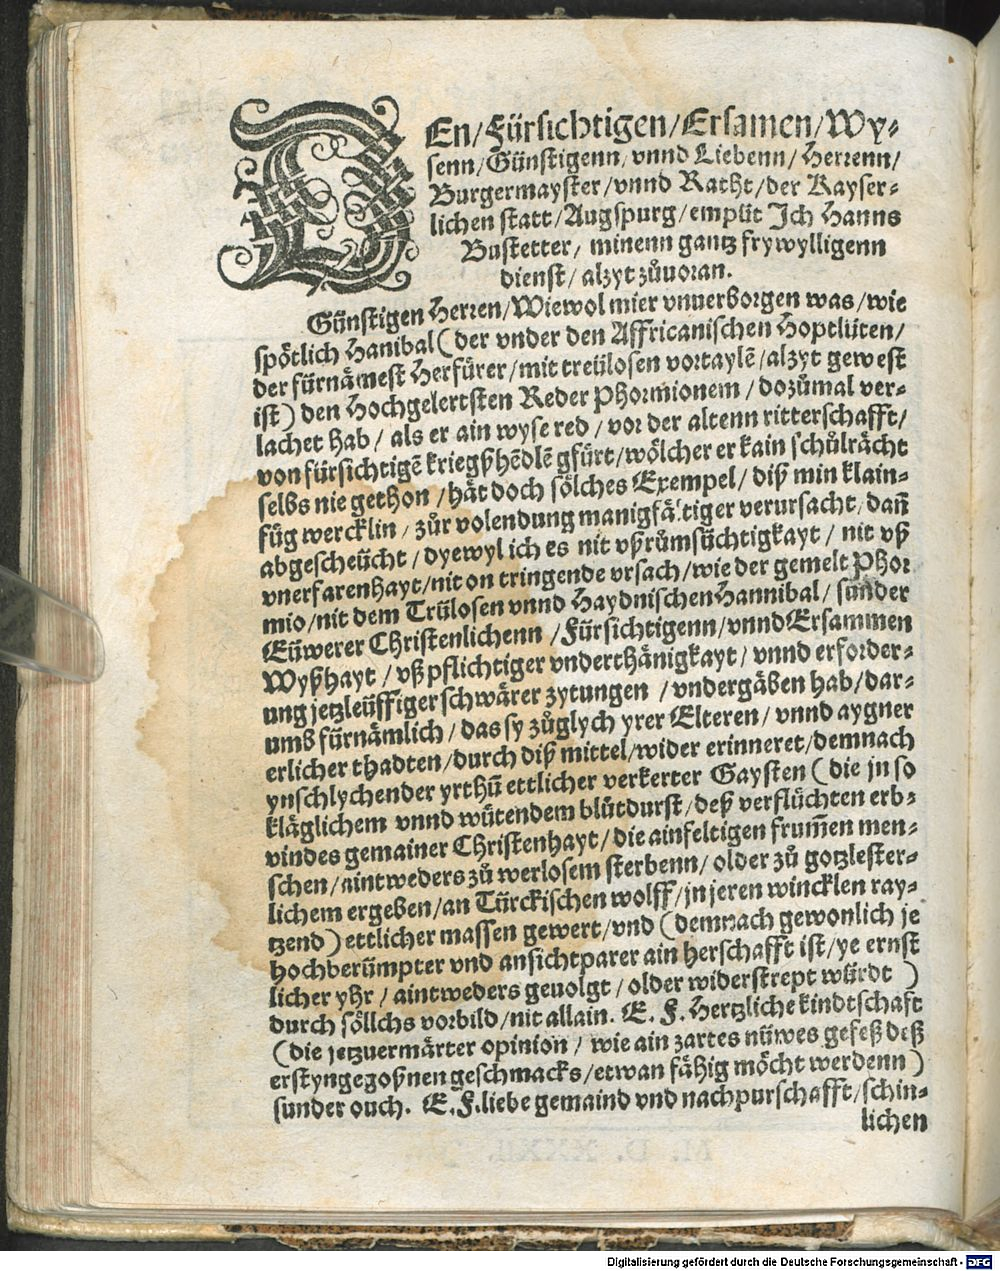 DEn/Fürsichtigen/Ersamen/Wy-
senn/Günstigenn/vnnd Liebenn/Herrenn/
Burgermayster/vnnd Racht/der Kayser-
lichen statt/Augspurg/empüt Ich Hanns
Bustetter/ minenn gantz frywylligenn
dienst/ alzyt zůuoran.
Günstigen Herren/Wiewol mier vnuerborgen was/wie
spötlich Hanibal (der vnder den Affricanischen Hoptlüten/
der fürnämest Herfürer/mit treülosen vortaylē/alzyt gewest
ist) den Hochgelertsten Reder Phormionem/dozůmal ver-
lachet hab/ als er ain wyse red/vor der altenn ritterschafft/
von fürsichtigē kriegßhēdlē gfürt/wölcher er kain schůlrächt
selbs nie gethon/hät doch sölches Exempel/diß min klain-
füg wercklin/ zůr volendung manigfältiger verursacht/dañ
abgescheücht/dyewyl ich es nit vßrůmsüchtigkayt/ nit vß
vnerfarenhayt/nit on tringende vrsach/wie der gemelt Phor
mio/nit dem Trülosen vnnd Haydnischen Hannibal/sunder
Eüwerer Christenlichenn/Fürsichtigenn/vnnd Ersammen
Wyßhayt/vß pflichtiger vnderthänigkayt/vnnd erforder-
ung jetzleüffiger schwärer zytungen /vndergäben hab/dar-
umb fürnämlich/das sy zůglych yrer Elteren/vnnd aygner
erlicher thadten/durch diß mittel/wider erinneret/demnach
ynschlychender yrthū ettlicher verkerter Gaysten (die jn so
kläglichem vnnd wütendem blůtdurst/deß verflüchten erb-
vindes gemainer Christenhayt/die ainfeltigen frum̄en men-
schen/aintweders zů werlosem sterbenn/older zů gotzlester-
lichem ergeben/an Türckischen wolff/jn jeren wincklen ray-
tzend) ettlicher massen gewert/vnd (demnach gewonlich je
hochberümpter vnd ansichtparer ain herschafft ist/ye ernst
licher yhr/aintweders geuolgt/older widerstrept würdt )
durch söllchs vorbild/nit allain. E. F. Hertzliche kindtschaft
(die jetzuermärter opinion/ wie ain zartes nüwes gefeß deß
erstyngegoßnen geschmacks/etwan fähig möcht werdenn)
sunder ouch. E.F.liebe gemaind vnd nachpurschafft/schin-
lichen
Digitalisierung gefördert durch die Deutsche Forschungsgemeinschaft - DFG